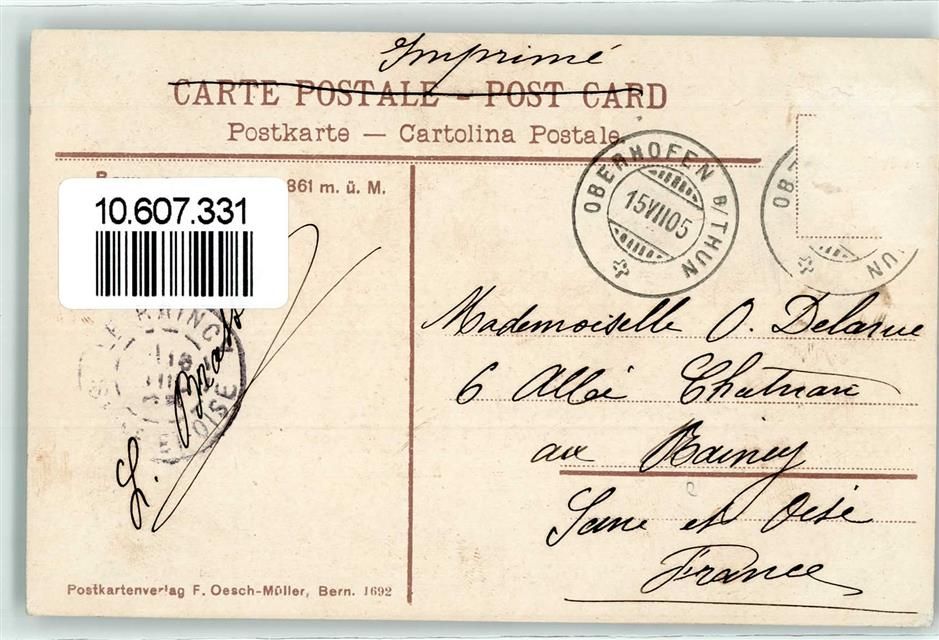 Imprimé
CARTE POSTALE - POST CARD
Postkarte — Cartolina Postale
861 m. ü. M.
10.607.331
OBERHOFEN B/THUN
15 VII 05
OBE HUN
LE RAINCY
18
ET OISE
L.
Mademoiselle O. Delarue
6 Allée Chatrian
au Raincy
Seine et Oise
France
Postkartenverlag F. Oesch-Müller, Bern. 1692